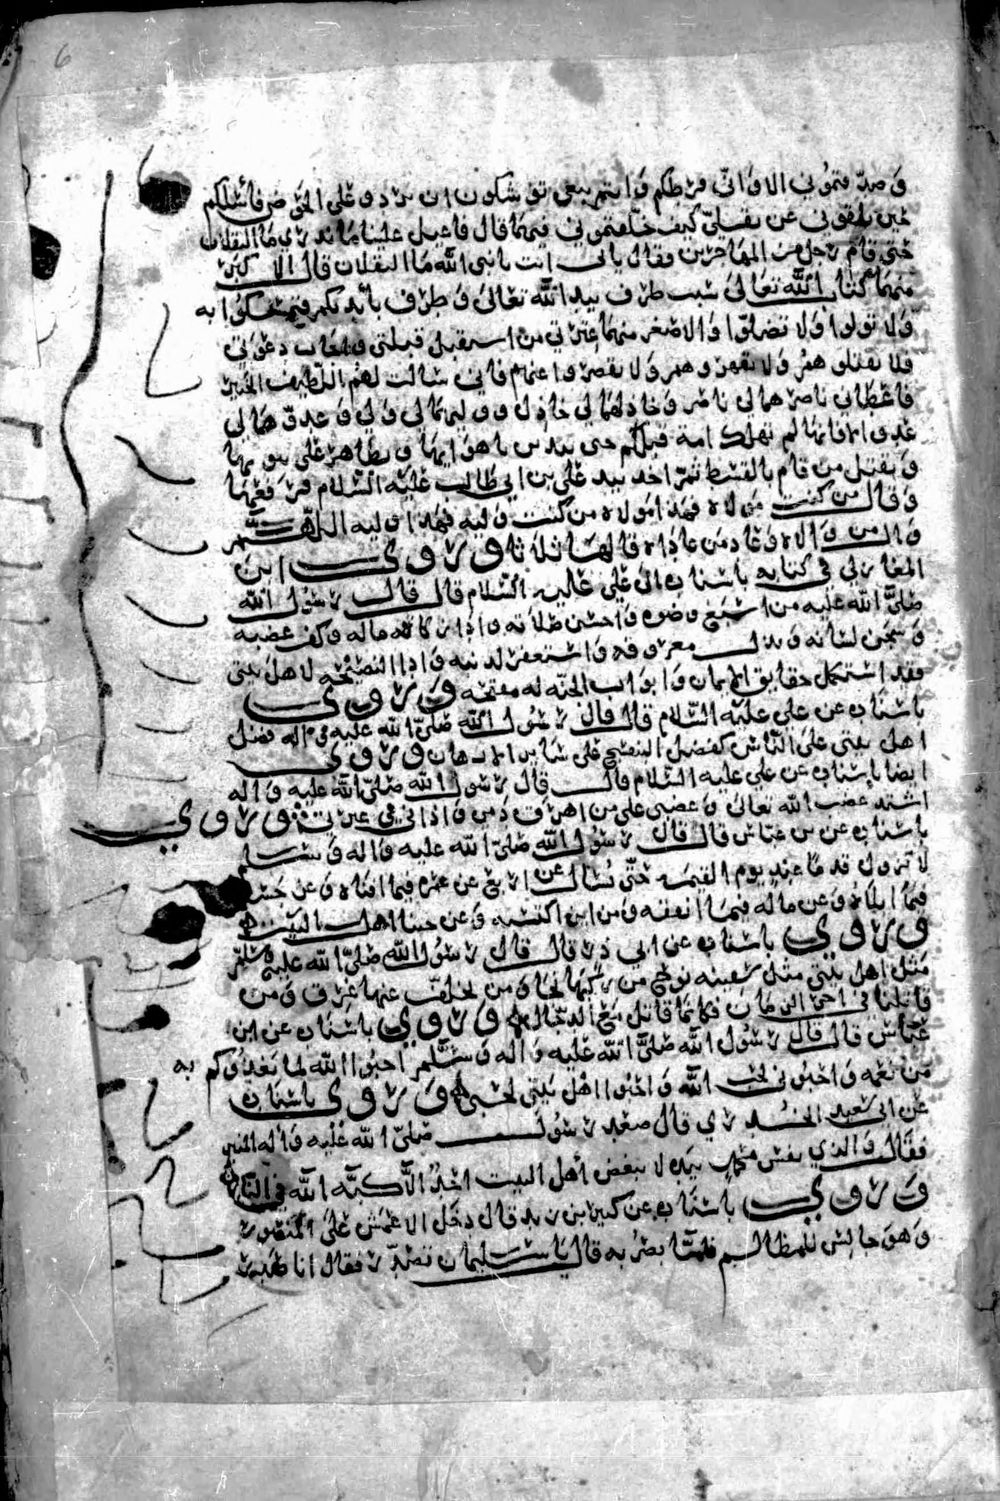 وصدقتموني الا واني فرطكم وانتم تبعي توشكون ان تردوا علي الحوض فأسلكم
حين تلقوني عن ثقلي كيف خلفتموني فيهما قال فاعيل علينا ما ندري ما الثقلان
حتى قام رجل من المهاجرين فقال بابي انت يا نبي الله ما الثقلان قال الاكبر
منهما كتاب الله تعالى سبب طرف بيد الله تعالى وطرف بايديكم فتمسكوا به
ولا تولوا ولا تضلوا والاصغر منهما عترتي من استقبل قبلتي واجاب دعوتي
فلا تقتلوهم ولا تقهروهم ولا تقصروا عنهم فاني سالت لهم اللطيف الخبير
فاعطاني ناصرهما لي ناصر وخاذلهما لي خاذل ووليهما لي ولي وعدوهما لي
عدو الا فانها لم تهلك امة قبلكم حتى تدين باهوايها وتظاهر على نبوتها
وتقتل من قام بالقسط ثم اخذ بيد علي بن ابي طالب عليه السلام فرفعها
وقال من كنت مولاه فهذا مولاه من كنت وليه فهذا وليه اللهم
وال من والاه وعاد من عاداه قالها ثلاثا وروى ابن
المغازلي في كتابه باسناده الى علي عليه السلام قال قال رسول الله
صلى الله عليه من اسبغ وضوه واحسن صلاته وادا زكاة ماله وكف غضبه
وسجن لسانه وبذل معروفه واستغفر لذنبه وادا النصيحة لاهل بيتي
فقد استكمل حقايق الايمان وابواب الجنه له مفتحه وروى
باسناده عن علي عليه السلام قال قال رسول الله صلى الله عليه واله فضل
اهل بيتي على الناس كفضل البنفسج على ساير الادهان وروى
ايضا باسناده عن علي عليه السلام قال قال رسول الله صلى الله عليه واله
اشتد غضب الله تعالى وغضبي على من اهرق دمي واذاني في عترتي وروى
باسناده عن بن عباس قال قال رسول الله صلى الله عليه واله وسلم
لا تزول قدما عبد يوم القيمه حتى يسال عن اربع عن عمره فيما افناه وعن جسده
فيما ابلاه وعن ماله فيما انفقه ومن اين اكتسبه وعن حبنا اهل البيت
وروى باسناده عن ابي ذر قال قال رسول الله صلى الله عليه وسلم
مثل اهل بيتي مثل سفينه نوح من ركبها نجا ومن تخلف عنها غرق ومن
قاتلنا في اخر الزمان فكانما قاتل مع الدجال وروى باسناده عن ابن
عباس قال قال رسول الله صلى الله عليه واله وسلم احبوا الله لما يغذوكم به
من نعمه واحبوني لحب الله واحبوا اهل بيتي لحبي وروى باسناده
عن ابي سعيد الخدري قال صعد رسول الله صلى الله عليه واله المنبر
فقال والذي نفس محمد بيده لا يبغض اهل البيت احد الا اكبه الله في النار
وروى باسناده عن كبير بن زيد قال دخل الاعمش على المنصور
وهو جالس للمظالم فلما بصر به قال يا سليمان تصدر فقال انا صدر